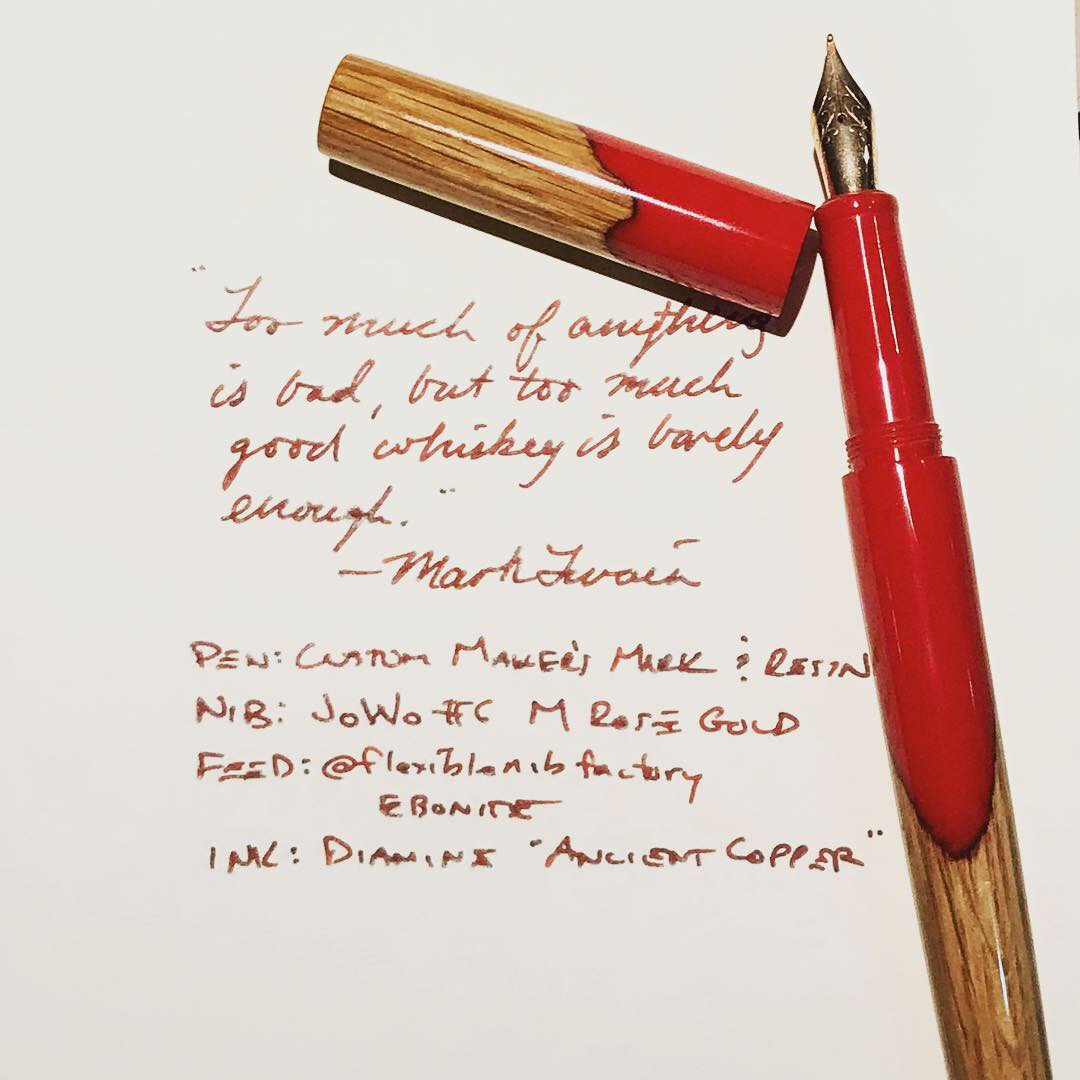 "Too much of anything
is bad, but too much
good whiskey is barely
enough."
—Mark Twain
PEN: CUSTOM MAKER'S MARK & RESIN
NIB: JoWo #6 M ROSE GOLD
FEED: @flexiblenibfactory
EBONITE
INK: DIAMINE "ANCIENT COPPER"